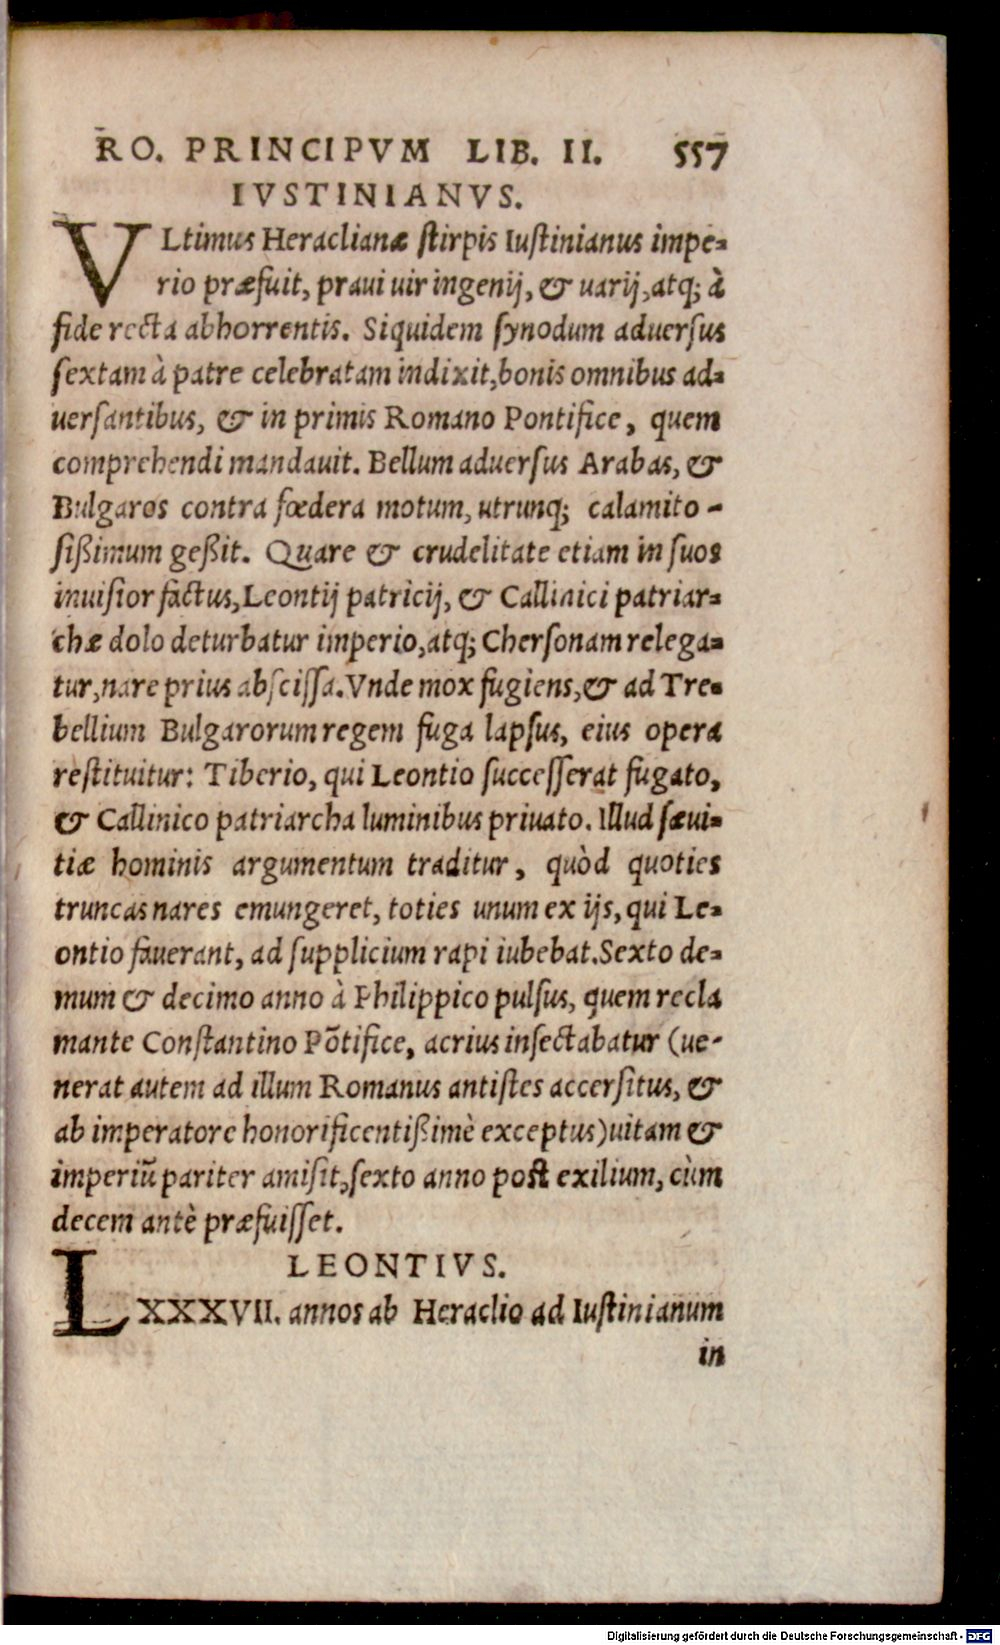 R̄O. PRINCIPVM LIB. II. 557
IVSTINIANVS.
VLtimus Heraclianæ ſtirpis Iuſtinianus impe-
rio præfuit, praui uir ingenij, & uarij, atq; à
fide recta abhorrentis. Siquidem ſynodum aduerſus
ſextam à patre celebratam indixit, bonis omnibus ad-
uerſantibus, & in primis Romano Pontifice, quem
comprehendi mandauit. Bellum aduerſus Arabas, &
Bulgaros contra fœdera motum, utrunq; calamito-
ſißimum geßit. Quare & crudelitate etiam in ſuos
inuiſior factus, Leontij patricij, & Callinici patriar-
chæ dolo deturbatur imperio, atq; Cherſonam relega-
tur, nare prius abſciſſa. Vnde mox fugiens, & ad Tre-
bellium Bulgarorum regem fuga lapſus, eius opera
reſtituitur: Tiberio, qui Leontio ſucceſſerat fugato,
& Callinico patriarcha luminibus priuato. Illud ſæui-
tiæ hominis argumentum traditur, quòd quoties
truncas nares emungeret, toties unum ex ijs, qui Le-
ontio fauerant, ad ſupplicium rapi iubebat. Sexto de-
mum & decimo anno à Philippico pulſus, quem recla
mante Conſtantino Põtifice, acrius inſectabatur (ue-
nerat autem ad illum Romanus antiſtes accerſitus, &
ab imperatore honorificentißimè exceptus) uitam &
imperiũ pariter amiſit, ſexto anno poſt exilium, cùm
decem antè præfuiſſet.
LEONTIVS.
LXXXVII. annos ab Heraclio ad Iuſtinianum
in
Digitalisierung gefördert durch die Deutsche Forschungsgemeinschaft - DFG